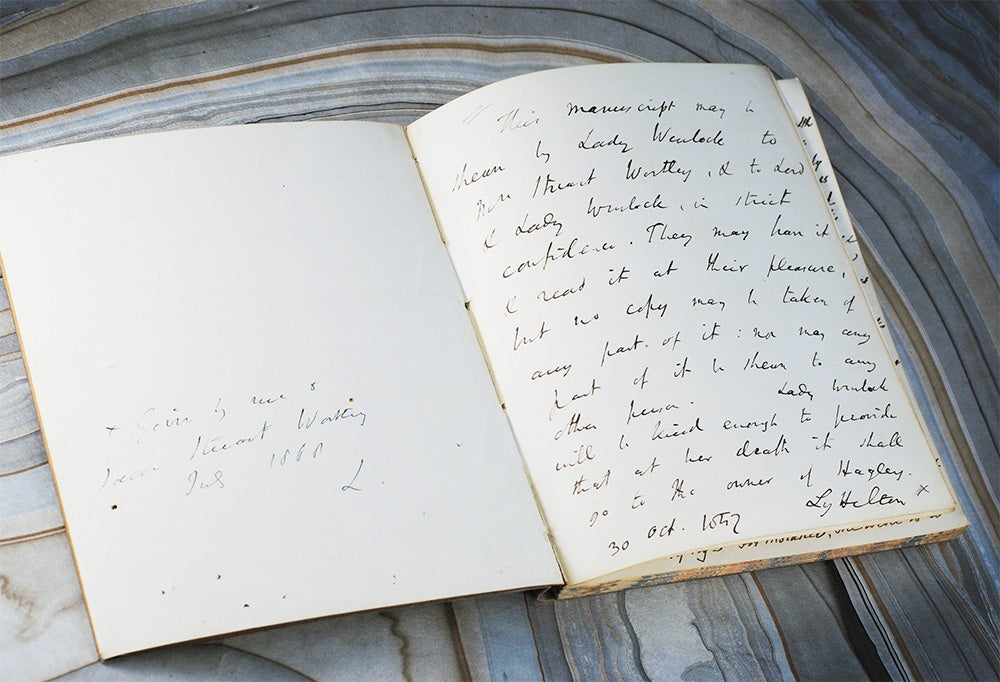 + Given by me
Stuart Wortley
July
L.
" This manuscript may be
shewn by Lady Wenlock to
Mrs Stuart Wortley, & to Lord
& Lady Wenlock, in strict
confidence. They may have it
& read it at their pleasure,
but no copy may be taken of
any part of it : nor may any
part of it be shewn to any
other person. Lady Wenlock
will be kind enough to provide
that at her death it shall
go to the owner of Hagley.
Lyttelton +
30 Oct. 1857